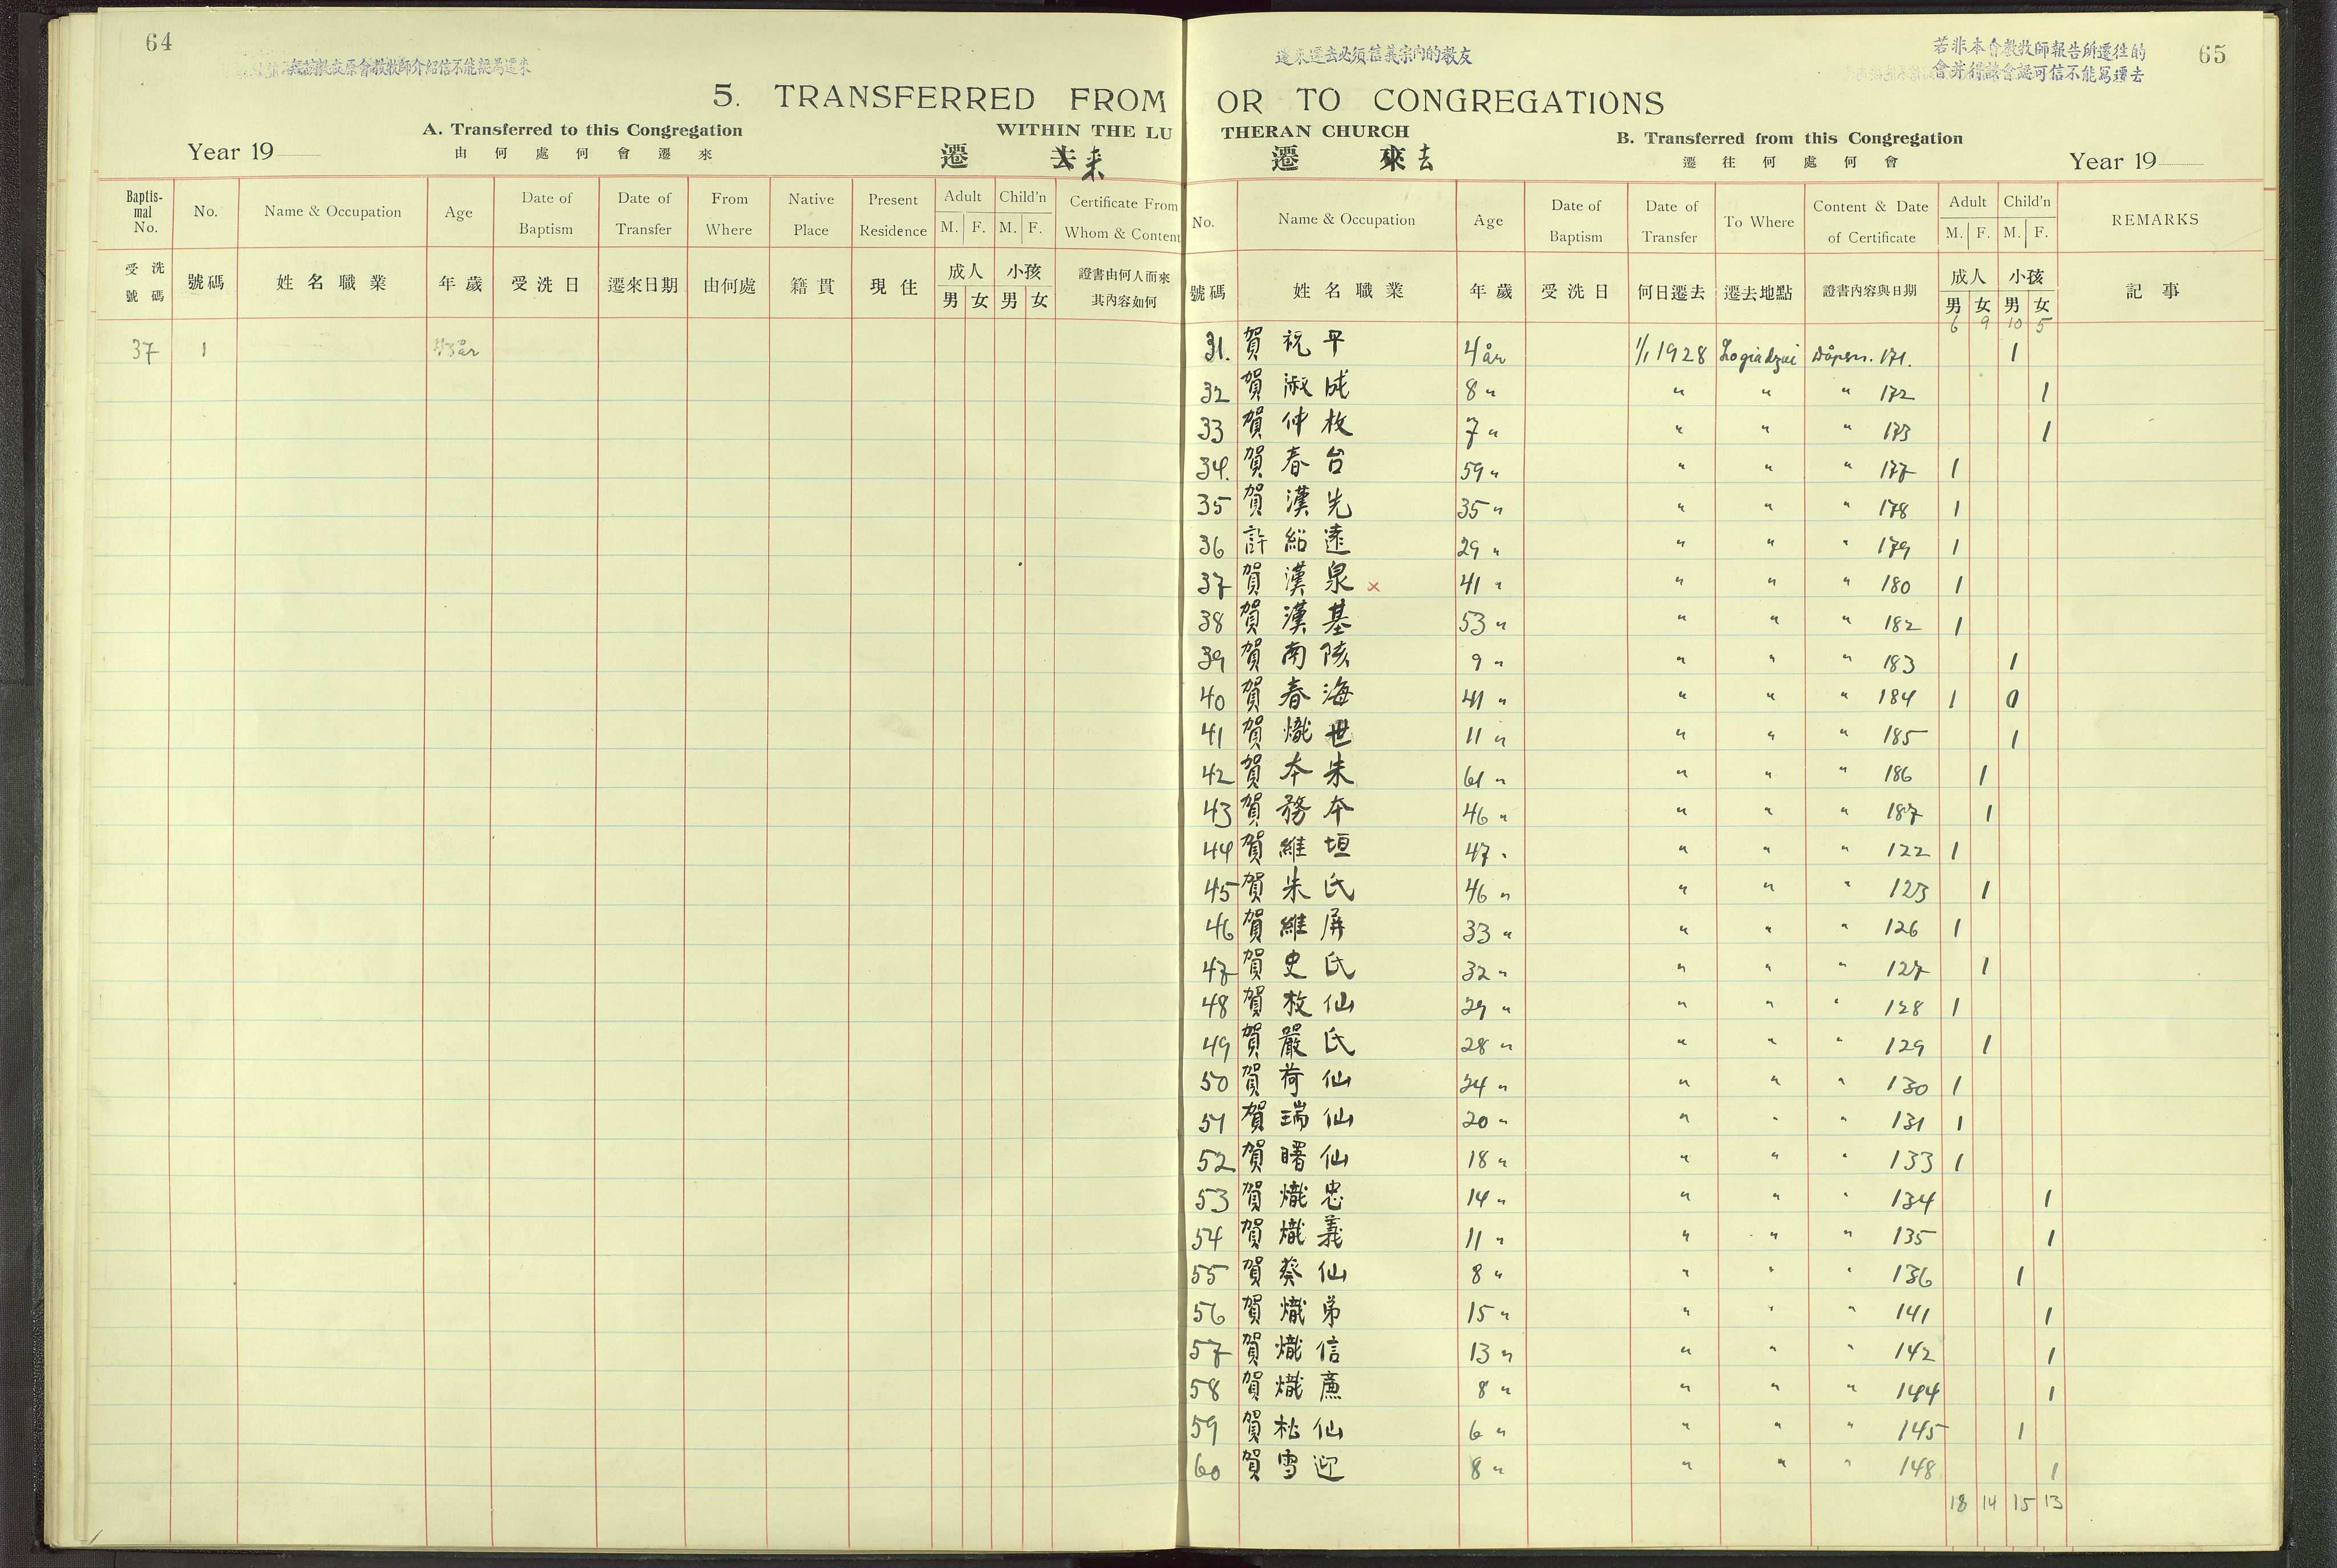 64
無該教友原會教牧師介紹信不能認為遷來
遷來遷去必須信義宗內的教友
若非本會教牧師報告所遷往的
會并得該會認可信不能寫遷去
65
5. TRANSFERRED FROM OR TO CONGREGATIONS
A. Transferred to this Congregation WITHIN THE LUTHERAN CHURCH B. Transferred from this Congregation
Year 19 由何處何會遷來 遷 去來 遷 來去 遷往何處何會 Year 19
Baptismal No. No. Name & Occupation Age Date of Baptism Date of Transfer From Where Native Place Present Residence Adult M. F. Child'n M. F. Certificate From Whom & Content
受洗號碼 號碼 姓名職業 年歲 受洗日 遷來日期 由何處 籍貫 現住 成人 男 女 小孩 男 女 證書由何人而來其內容如何
37 1 43 år
No. Name & Occupation Age Date of Baptism Date of Transfer To Where Content & Date of Certificate Adult M. F. Child'n M. F. REMARKS
號碼 姓名職業 年歲 受洗日 何日遷去 遷去地點 證書內容與日期 成人 男 女 小孩 男 女 記事
6 9 10 5
31. 賀祝平 4 år 1/1 1928 Logiadzai Dåpsn. 171. 1
32 賀淑成 8 " " " " 172 1
33 賀仲枚 7 " " " " 173 1
34. 賀春台 59 " " " " 177 1
35 賀漢先 35 " " " " 178 1
36 許紹遠 29 " " " " 179 1
37 賀漢泉 x 41 " " " " 180 1
38 賀漢基 53 " " " " 182 1
39 賀南陔 9 " " " " 183 1
40 賀春海 41 " " " " 184 1 0
41 賀熾世 11 " " " " 185 1
42 賀本朱 61 " " " " 186 1
43 賀務本 46 " " " " 187 1
44 賀維垣 47 " " " " 122 1
45 賀朱氏 46 " " " " 123 1
46 賀維屏 33 " " " " 126 1
47 賀史氏 32 " " " " 127 1
48 賀枚仙 29 " " " " 128 1
49 賀嚴氏 28 " " " " 129 1
50 賀荷仙 24 " " " " 130 1
51 賀瑞仙 20 " " " " 131 1
52 賀曙仙 18 " " " " 133 1
53 賀熾忠 14 " " " " 134 1
54 賀熾義 11 " " " " 135 1
55 賀葵仙 8 " " " " 136 1
56 賀熾弟 15 " " " " 141 1
57 賀熾信 13 " " " " 142 1
58 賀熾廉 8 " " " " 144 1
59 賀松仙 6 " " " " 145 1
60 賀雪迎 8 " " " " 148 1
18 14 15 13